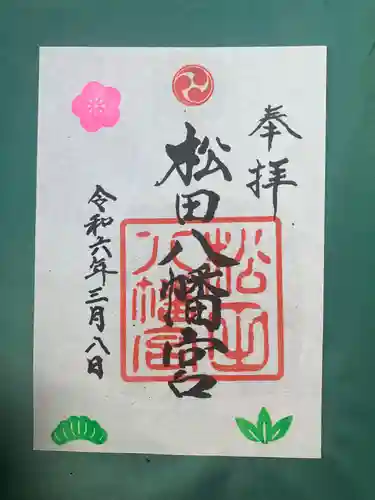 奉拝
松田八幡宮
松田八幡宮
令和六年三月八日